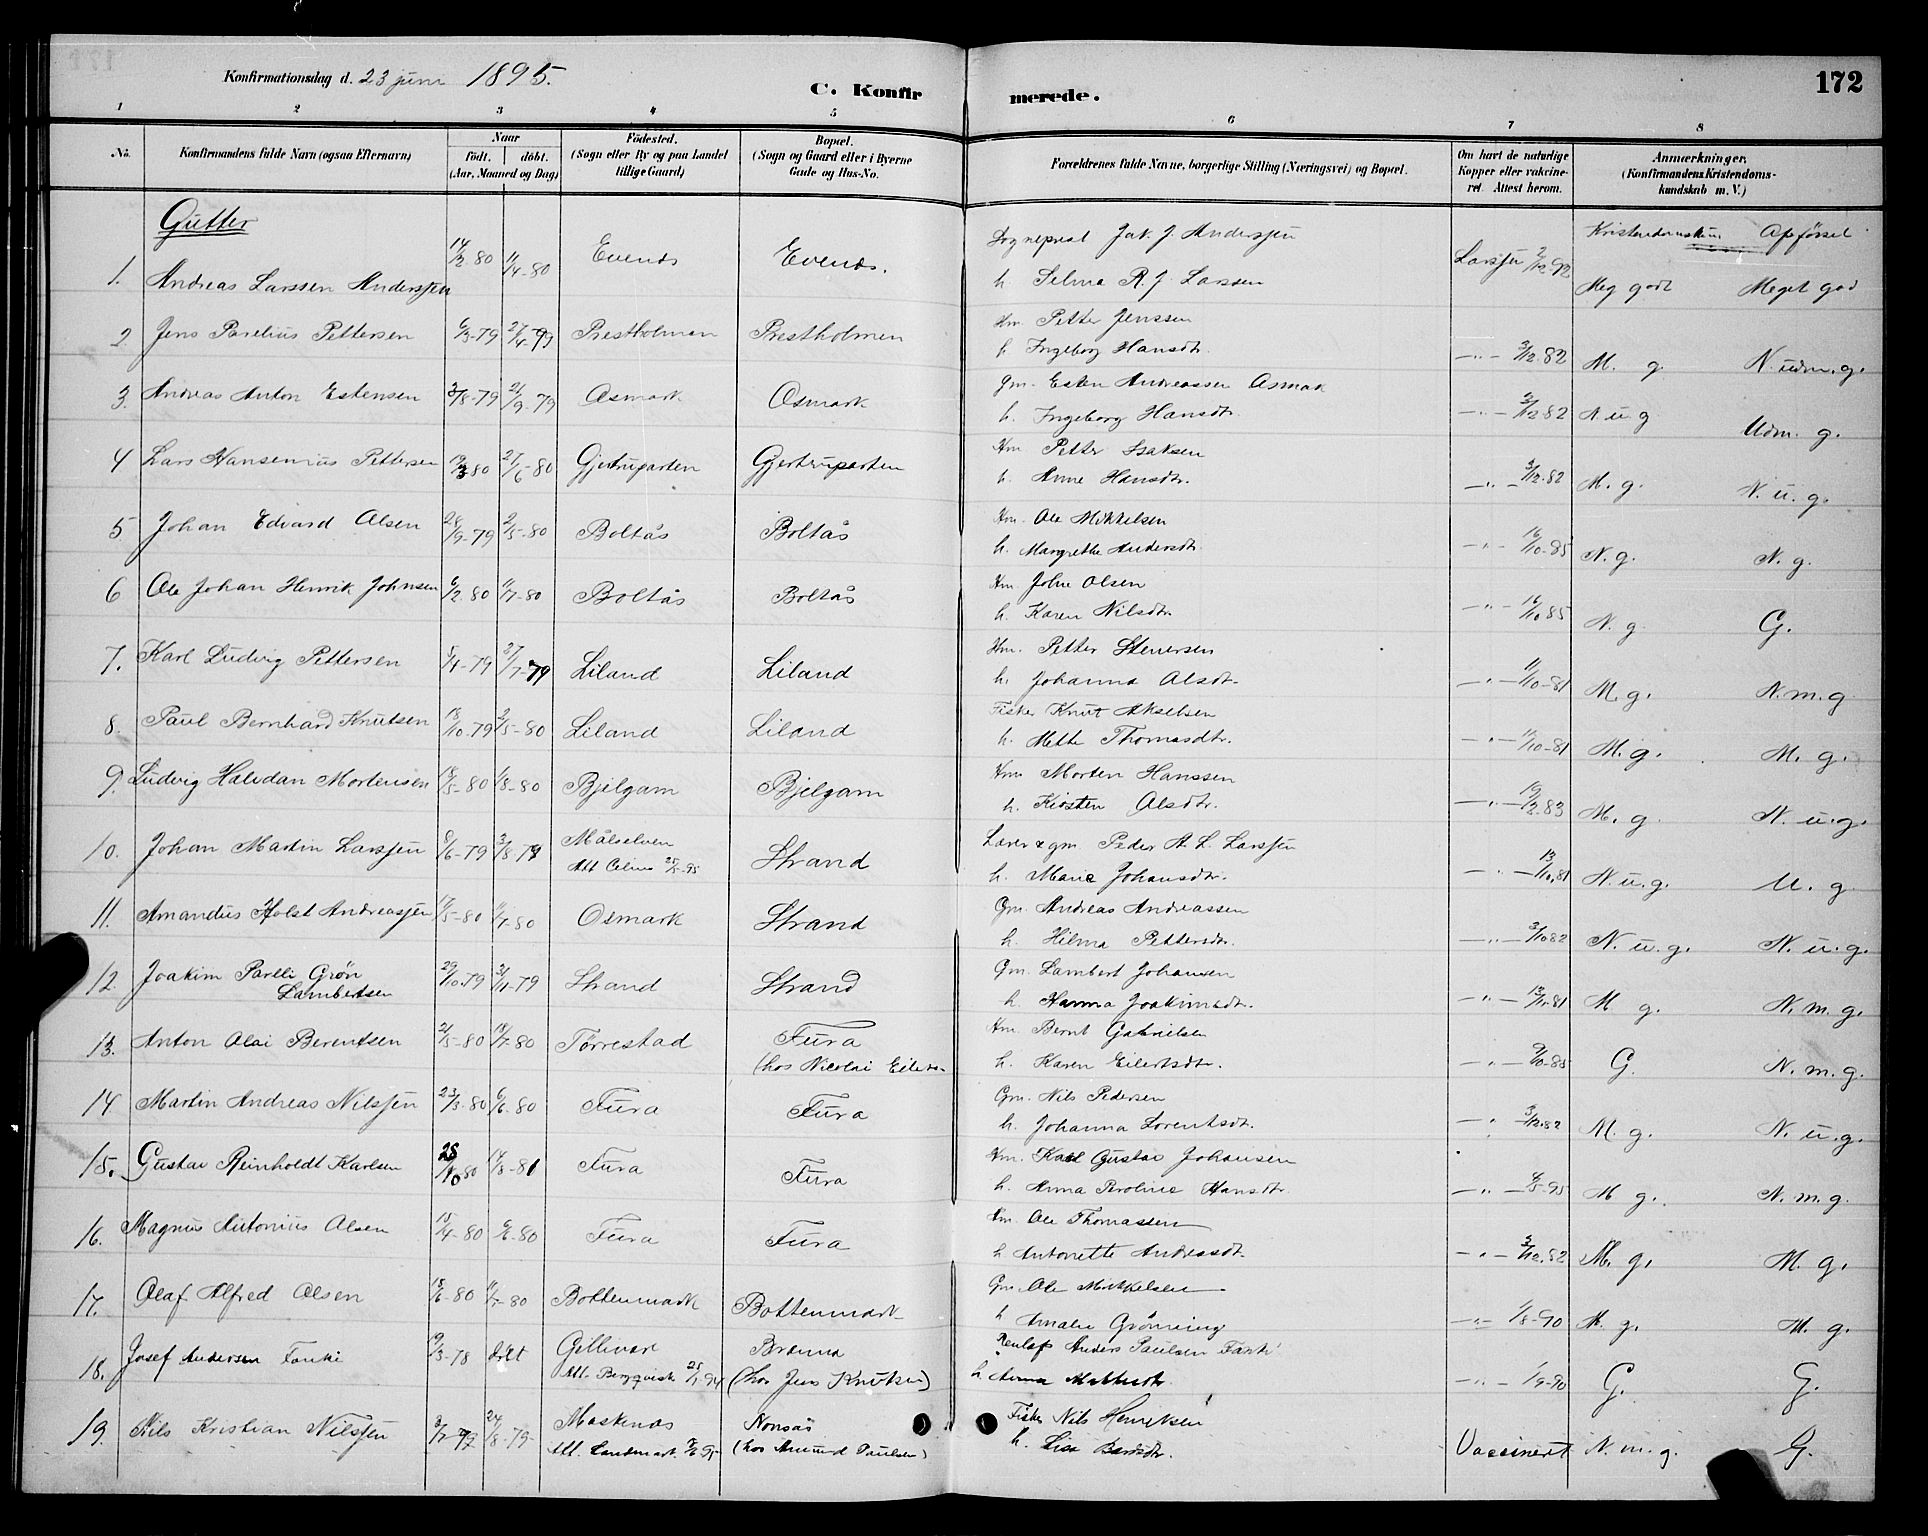 172
Konfirmationsdag d. 23 juni 1895.
C. Konfirmerede.
1 2 3 4 5 6 7 8
No. Konfirmandens fulde Navn (ogsaa Efternavn) Naar födt. döbt. (Aar, Maaned og Dag) Födested. (Sogn eller By og paa Landet tillige Gaard) Bopæl. (Sogn og Gaard eller i Byerne Gade og Hus-No. Forældrenes fulde Navne, borgerlige Stilling (Næringsvei) og Bopæl. Om havt de naturlige Kopper eller vakcineret. Attest herom. Anmærkninger. (Konfirmandens Kristendomskundskab m. V.)
Gutter
Kristendomskun Opførsel
1. Andreas Larssen Anderssen 14/2 80 11/4-80 Evenes Evenes. Sogneprest Jak. J. Anderssen
h. Selma R. J. Larssen Larssen 2/12 92 Meg godt Meget god
2 Jens Parelius Pettersen 6/3-79 27/4-79 Prestholmen Prestholmen Hm. Petter Jenssen
h. Ingeborg Hansdtr. —"— 3/12.82 M. g. N. udm. g.
3. Andreas Anton Estensen 3/8-79 21/9-79 Osmark Osmark Gm. Esten Andreassen Osmark
h. Ingeborg Hansdtr. —"— 3/12 82 N. u g Udm. g.
4 Lars Hansenius Pettersen 19/3 80 27/6-80 Gjertruparten Gjertruparten Hm Petter Isaksen
h. Anne Hansdtr. —"— 3/12.82 M. g. N. u. g.
5 Johan Edvard Olsen 28/9-79 2/5-80 Boltås Boltås Hm. Ole Mikkelsen
h. Margrethe Andersdtr. —"— 16/10-85 N. g. N. g.
6 Ole Johan Henrik Johnsen 6/2.80 11/7-80 Boltås Boltås Hm John Olsen
h. Karen Nilsdtr. —"— 16/10 85 N. g. G.
7. Karl Ludvig Pettersen 5/4-79 27/7-79 Liland Liland Hm. Petter Stenersen
h. Johanna Olsdtr. —"— 11/10-81 M. g. N. m. g
8. Paul Bernhard Knutsen 18/10.79 2/5-80 Liland Liland Fisker Knut Akselsen
h. Mette Thomasdtr. —"— 11/10-81 M. g. M. g.
9. Ludvig Halvdan Mortensen 18/5-80 1/8-80 Bjelgam Bjelgam Hm Morten Hanssen
h. Kirsten Olsdtr. —"— 19/2.83 M. g. N. u. g.
10. Johan Martin Larssen 8/6-79 3/8-79 Målselven
Att Celius 25/5-95 Strand Lærer & gm. Peder A. L. Larssen
h. Marie Johansdtr. —"— 13/10.81 N. u. g. U. g.
11. Amandus Holst Andreassen 17/5-80 11/7-80 Osmark Strand Gm. Andreas Andreassen
h. Hilma Pettersdtr. —"— 3/10 82 N. u. g. N. u. g.
12. Joakim Parelli Grøn
Lambertsen 29/10.79 3/11-79 Strand Strand Gm. Lambert Johansen
h. Hanna Joakimsdtr. —"— 13/10-81 M g. N. m. g.
13. Anton Olai Berentsen 21/5-80 18/7-80 Tørrestad Fura
(hos Nicolai Eilerts. Hm. Bernt Gabrielsen
h. Karen Eilertsdtr. —"— 9/10-85 G. N. m. g.
14 Martin Andreas Nilssen 23/3-80 6/6-80 Fura Fura Gm. Nils Pedersen
h. Johanna Lorentsdtr. —"— 3/12.82 M. g. N. u. g.
15. Gustav Reinholdt Karlsen 28/10 80 17/3-81 Fura Fura Hm. Karl Gustav Johansen
h. Anna Peroline Hansdtr. —"— 2/5-95 M g. N. m. g.
16. Magnus Antonius Olsen 15/4-80 6/6-80 Fura Fura Hm. Ole Thomassen
h Antonette Andreasdtr. —"— 3/12.82 M. g. M. g.
17. Olaf Alfred Olsen 18/6-80 11/7-80 Bottenmark Bottenmark Gm. Ole Mikkelsen
h Amalie Grönning —"— 1/8-90 M. g. M. g.
18. Josef Andersen Fanki 9/3-78 døbt Gellivare
Att. Bergqvist 25/1-94 Brenna
(hos Jens Knutsen) Renlap Anders Paulsen Fank
h. Anna Mathisdtr. —"— 1/9-90 G. G.
19. Nils Kristian Nilssen 3/7-79 24/8-79 Moskenes
Att. Landmark. Nonsås
(hos Amund Paulsen) Fisker Nils Henriksen
h. Lisa Bårdsdtr. Vaccinert N. m. g. G.